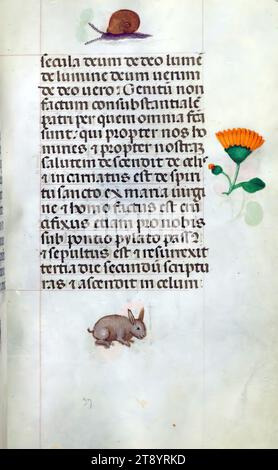 secula deum de deo lumē
de lumine deum uerum
de deo uero: Genitū non
factum consubstantialē
patri per quem omnia fca
sunt: qui propter nos ho
mines & propter nostrā
salutem descendit de celis
& incarnatus est de spiri
tu sancto ex maria uirgi
ne & homo factus est cru
cifixus etiam pro nobis
sub pontio pylato pass9
& sepultus est & resurrexit
tertia die secundū scriptu
ras & ascendit in celum:
alamy
Image ID: 2T8YRKD
www.alamy.com